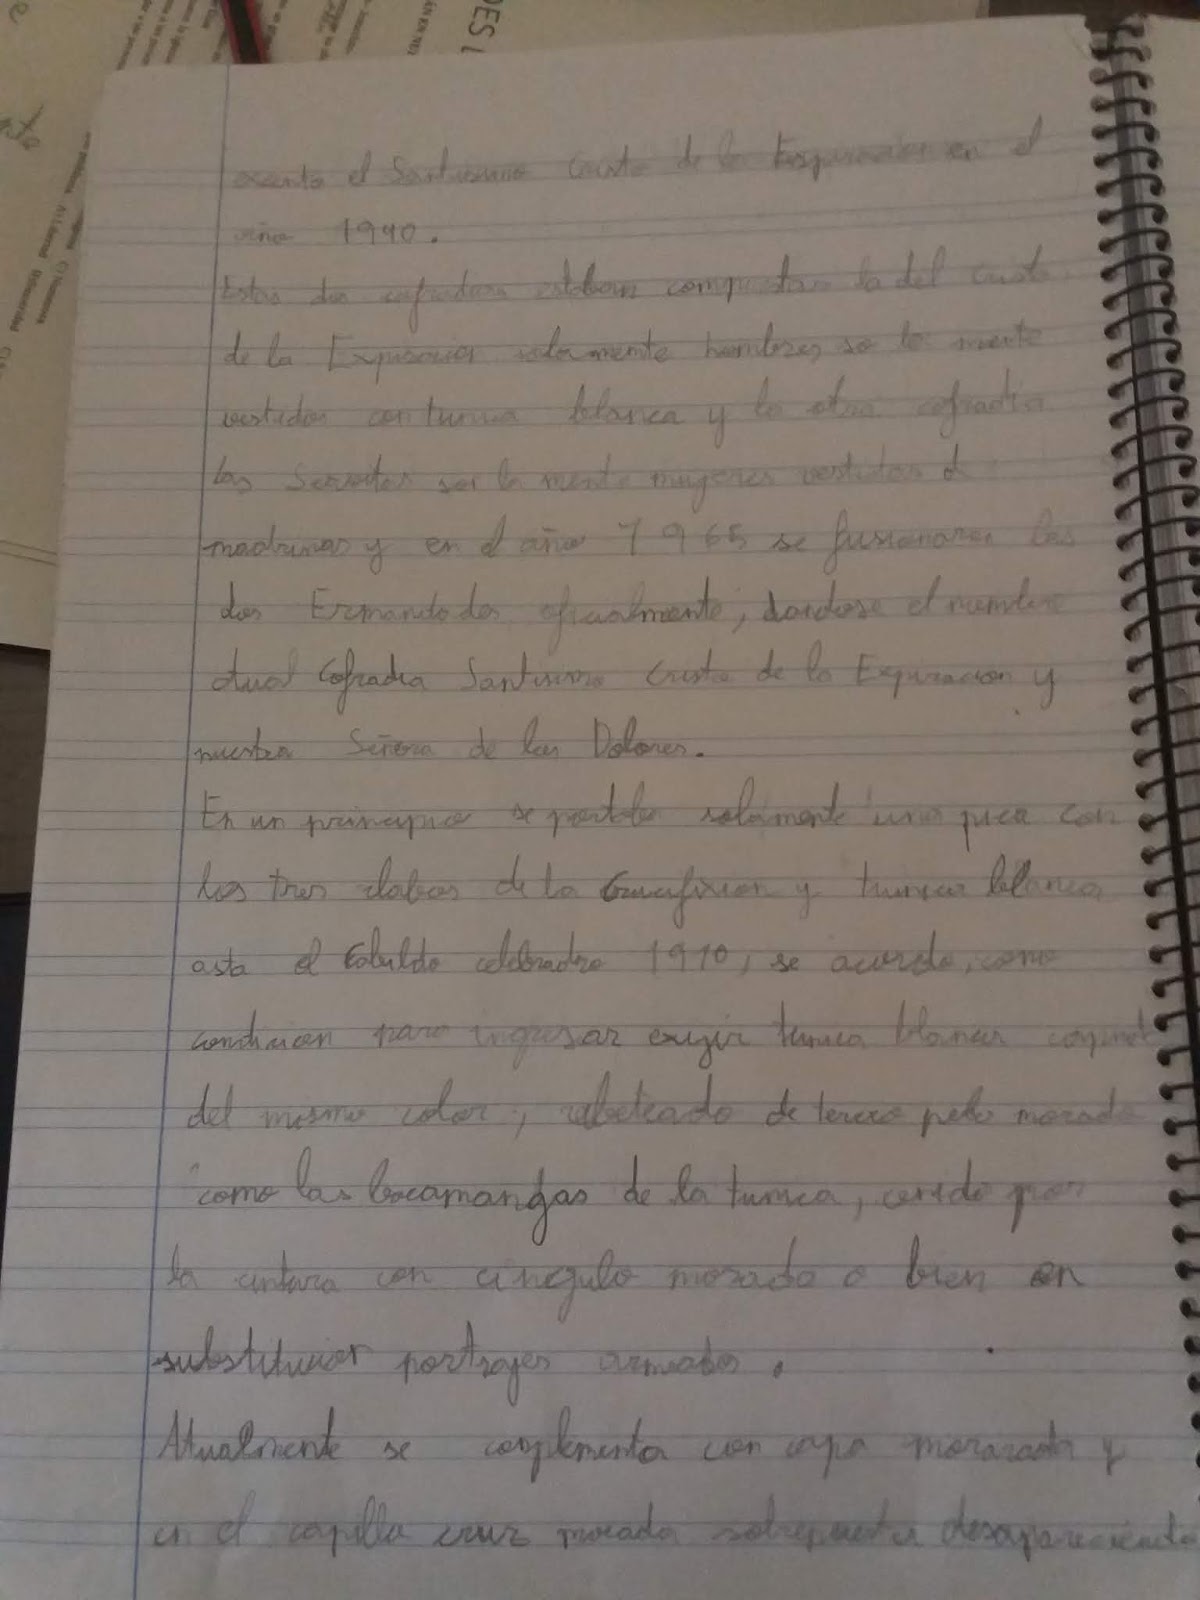 el Santisimo Cristo de la Expiracion en el
año 1940.
Estas dos cofradias estaban compuestas la del Cristo
de la Expiracion solamente hombres so la mente
vestidos con tunica blanca y la otra cofradia
las Servitas so la mente mugeres vestidas d
madrinas y en el año 1965 se fusionaron las
dos Ermandades oficialmente, dandose el nombre
atual Cofradia Santisimo Cristo de la Expiracion y
nuestra Señora de los Dolores.
En un principio se portaba solamente una pica con
los tres clabos de la Crucifixion y tunica blanca
asta el Cabildo celebradro 1970, se acordo, como
condicion para ingresar exigir tunica blanca
del mismo color, rabeteado de tercio pelo morado
como las bocamangas de la tunica, cenido por
la cintura con cingulo morado o bien en
substitucion por trajes armados.
Atualmente se complementa con capa morarada y
en el capilla cruz morada sobrepuesta desapareciendo